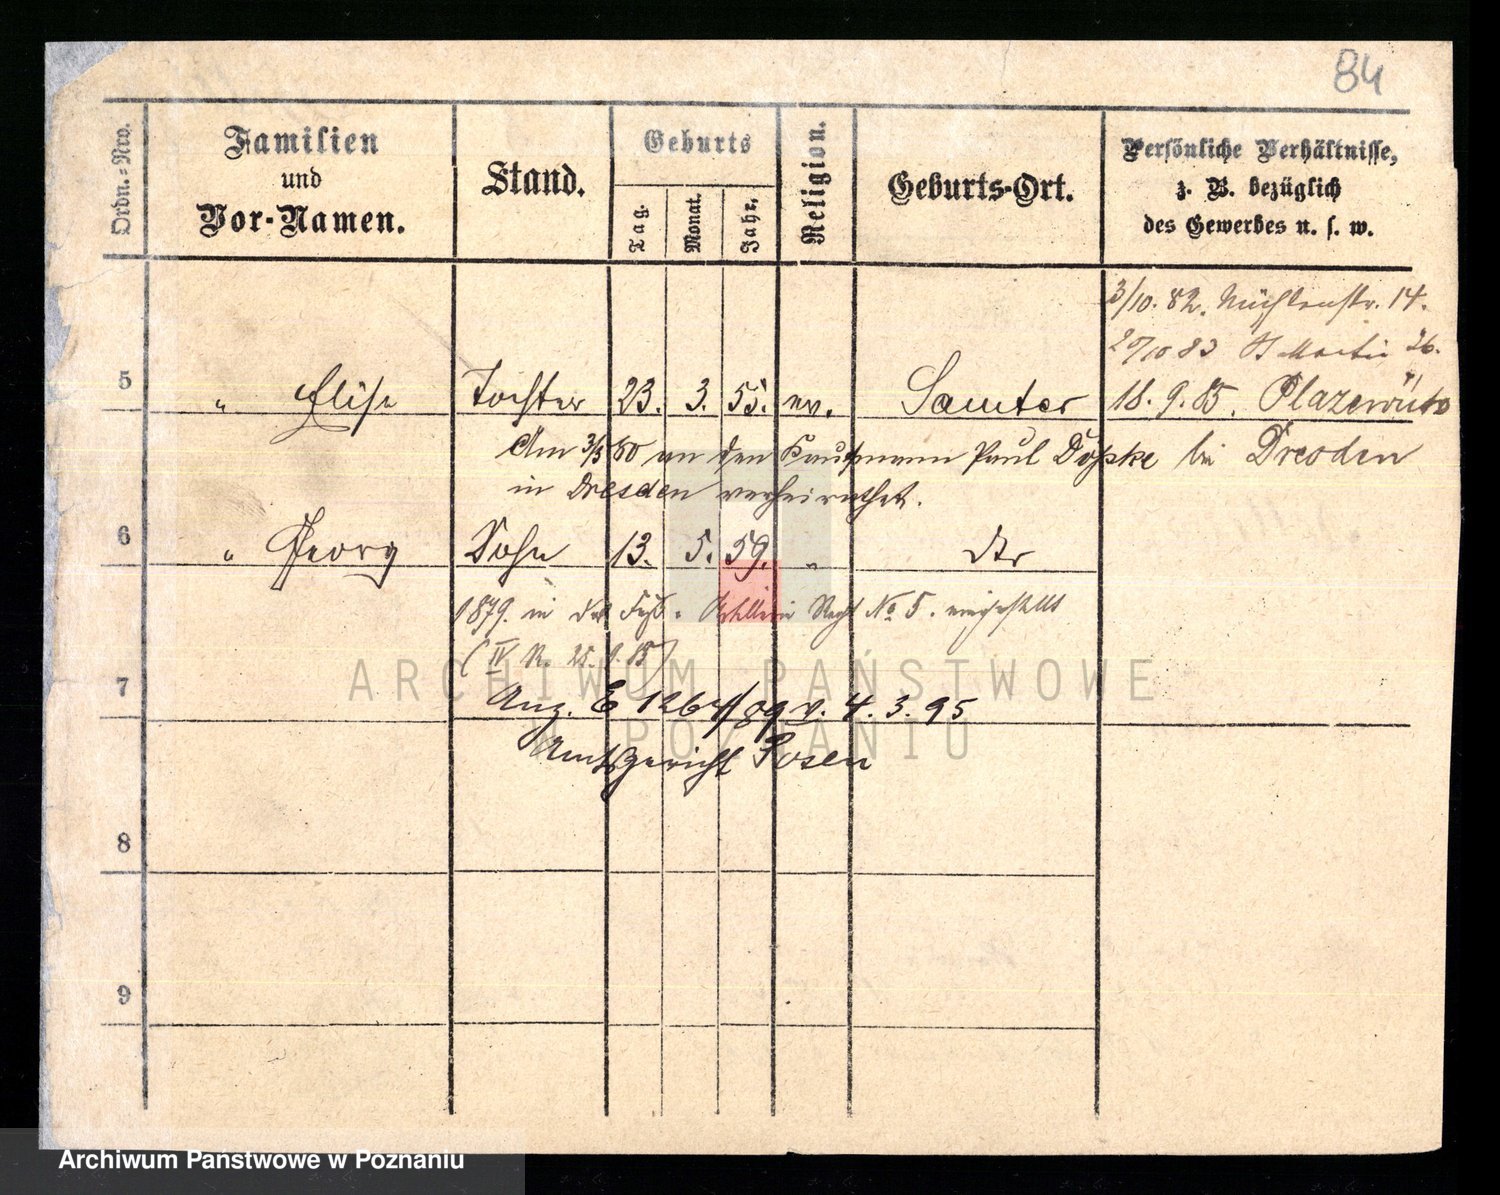 84
Ordn.-Nro.
Familien
und
Vor-Namen.
Stand.
Geburts
Tag.
Monat.
Jahr.
Religion.
Geburts-Ort.
Persönliche Verhältnisse,
z. B. bezüglich
des Gewerbes u. s. w.
3/10. 82. Mühlenstr. 14.
20/10 83 St Martin 26.
5 " Elise Tochter 23. 3. 55. ev. Samter 18. 9. 85.
Am 3/5 80 an den Kaufmann Paul Döpke bei Dresden
in Dresden verheirathet.
6 " Georg Sohn 13. 5. 59. " dto
1879. in das Fuß. Artillerie Regt No 5. eingestellt
(IV R. 85)
7
Ang. E 1264/89 v. 4. 3. 95
Amtsgericht Posen
8
9
ARCHIWUM PAŃSTWOWE
W POZNANIU
Archiwum Państwowe w Poznaniu